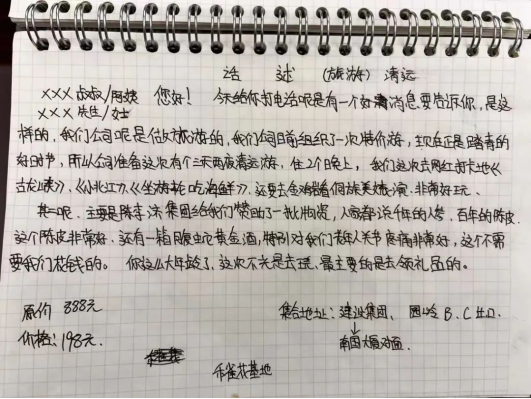 话述 (旅游) 清远
XXX叔叔/阿姨 您好! 今天给你打电话呢是有一个好消息要告诉你,是这
XXX先生/女士
样的,我们公司呢是做旅游的,我们公司目前组织了一次特价游,现在正是踏青的
好时节,所以公司准备这次有个三天两夜清远游,住2个晚上,我们这次去网红打卡地《
古龙峡》、《小北江》、《坐游船吃海鲜》、还要去金鸡岩看侗族美女表演.非常好玩.
其二呢.主要是陈李济集团给我们赞助了一批物资,人家都说千年的人参,百年的陈皮
这个陈皮非常好.还有一箱腹虫它黄金酒,特别对我们老年人关节疼痛非常好,这个不需
要我们花钱的。你这么大年龄了,这次不光是去玩、最主要的是去领礼品的。
原价 888元
集合地址:建设集团、园岭B、C出口.
价格:198元.
南国大厦对面.
禾雀花基地